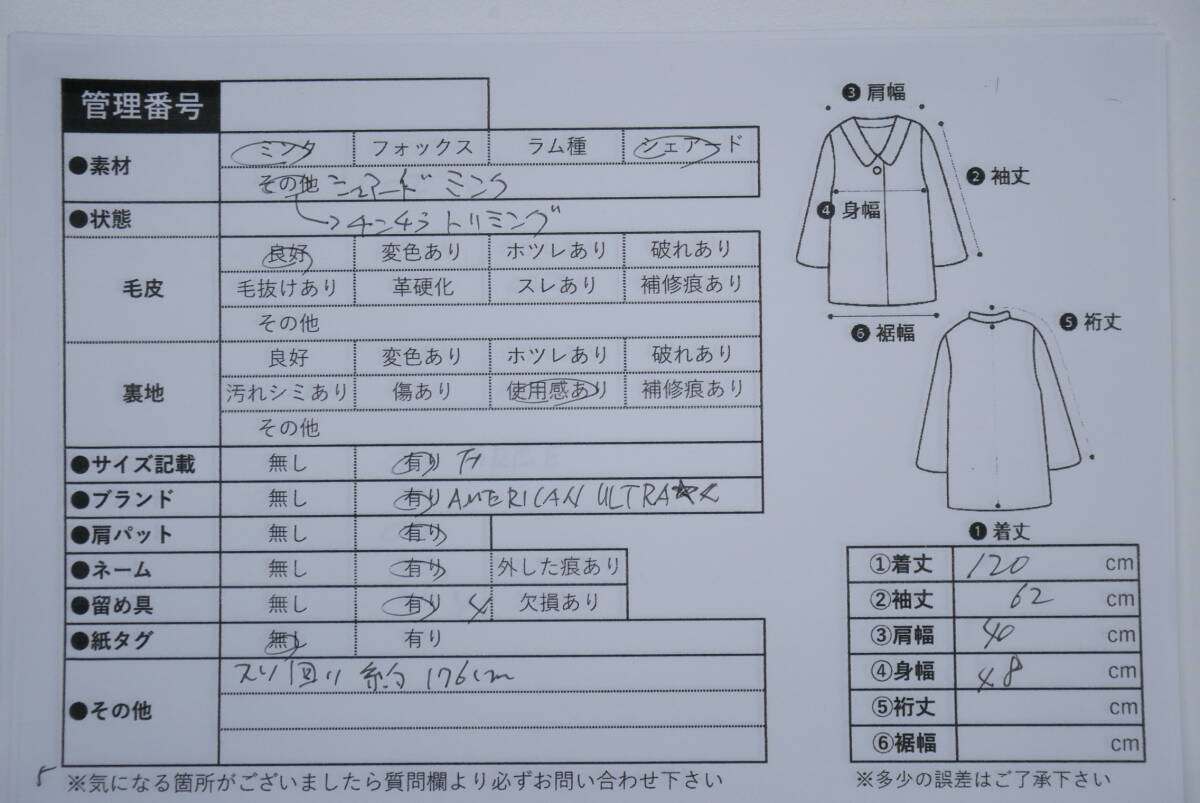 管理番号
●素材 ミンク フォックス ラム種 シェアード
その他 シェアード ミンク
●状態 →チンチラトリミング
毛皮 良好 変色あり ホツレあり 破れあり
毛抜けあり 革硬化 スレあり 補修痕あり
その他
裏地 良好 変色あり ホツレあり 破れあり
汚れシミあり 傷あり 使用感あり 補修痕あり
その他
●サイズ記載 無し 有り
●ブランド 無し 有り AMERICAN ULTRA
●肩パット 無し 有り
●ネーム 無し 有り 外した痕あり
●留め具 無し 有り 4 欠損あり
●紙タグ 無し 有り
●その他 スソ回り 約176cm
5 ※気になる箇所がございましたら質問欄より必ずお問い合わせ下さい
❸肩幅
❷袖丈
❹身幅
❻裾幅
❺裄丈
❶着丈
①着丈 120 cm
②袖丈 62 cm
③肩幅 40 cm
④身幅 48 cm
⑤裄丈 cm
⑥裾幅 cm
※多少の誤差はご了承下さい